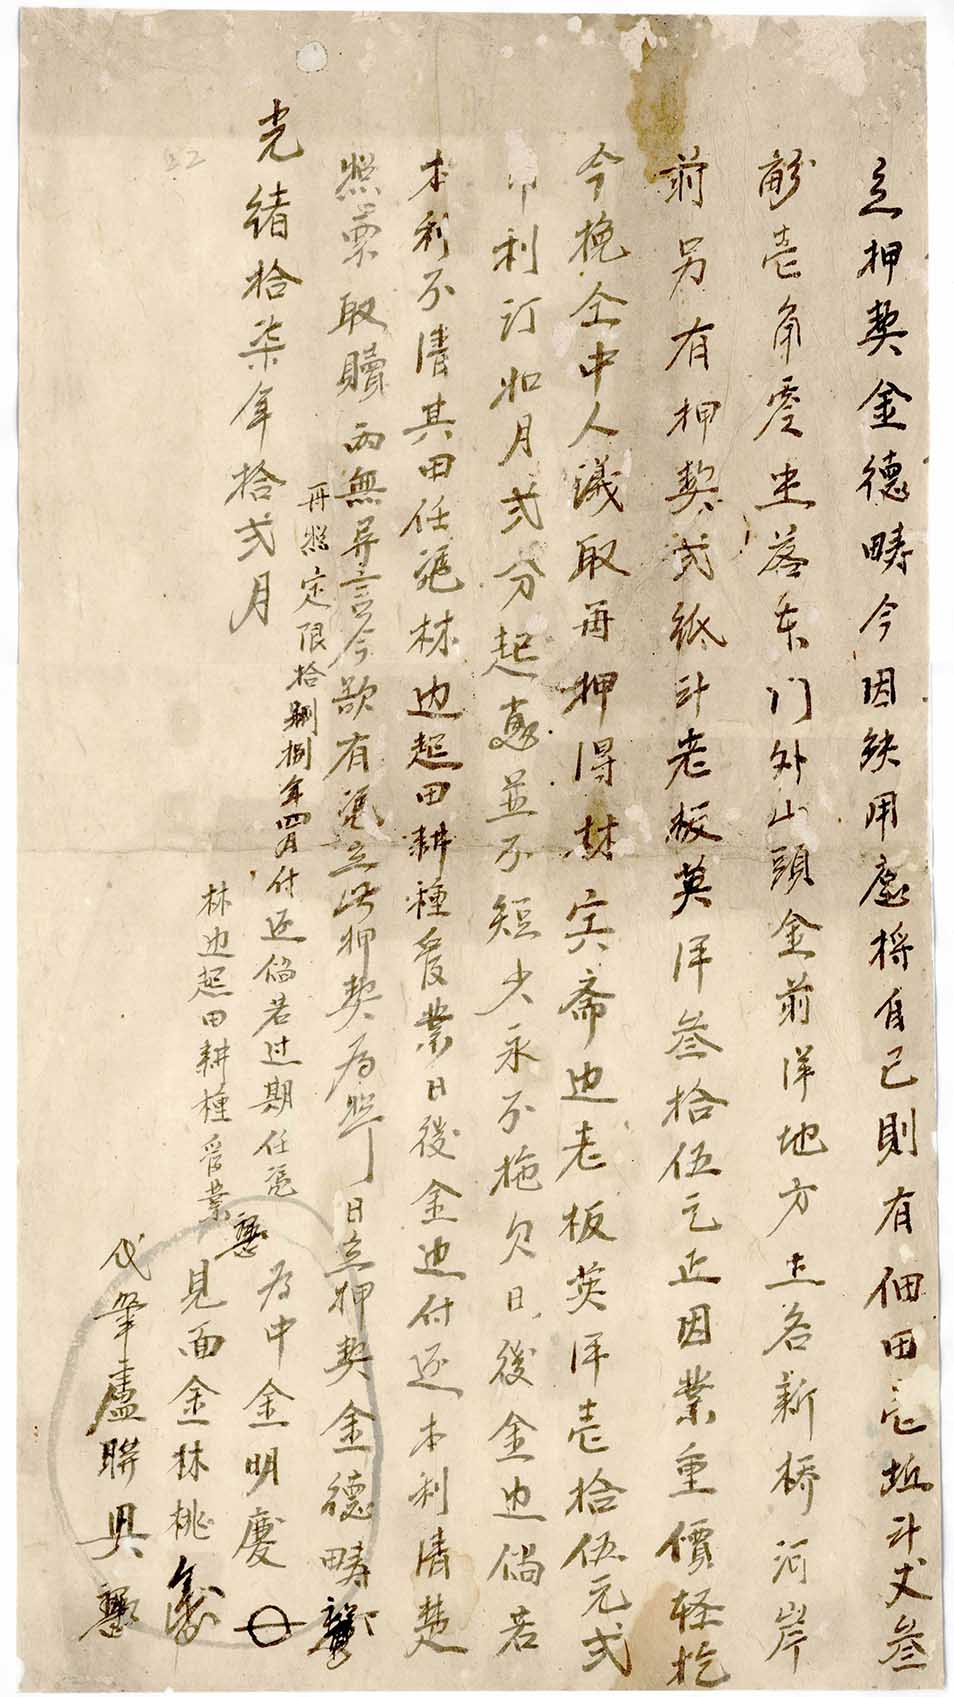 立押契金德畴今因缺用愿将自己則有佃田壱坵計丈叁
畝壱角零坐落东门外山頭金前洋地方土名新桥河岸
前另有押契弍纸計老板英洋叁拾伍元正因業重價轻挖
今挽仝中人議取再押得林宾斋边老板英洋壱拾伍元弍
利订加月弍分起息並不短少永不拖欠日後金边倘若
本利不清其田任凴林边起田耕種管業日後金边付还本利清楚
照票取贖两無异言今欲有凴立此押契为照 日立押契金德畴
再照定限拾捌年四月付还倘若过期任凴
林边起田耕種管業
光绪拾柒年拾弍月
为中金明慶
見面金林桃
代筆盧聯具
22